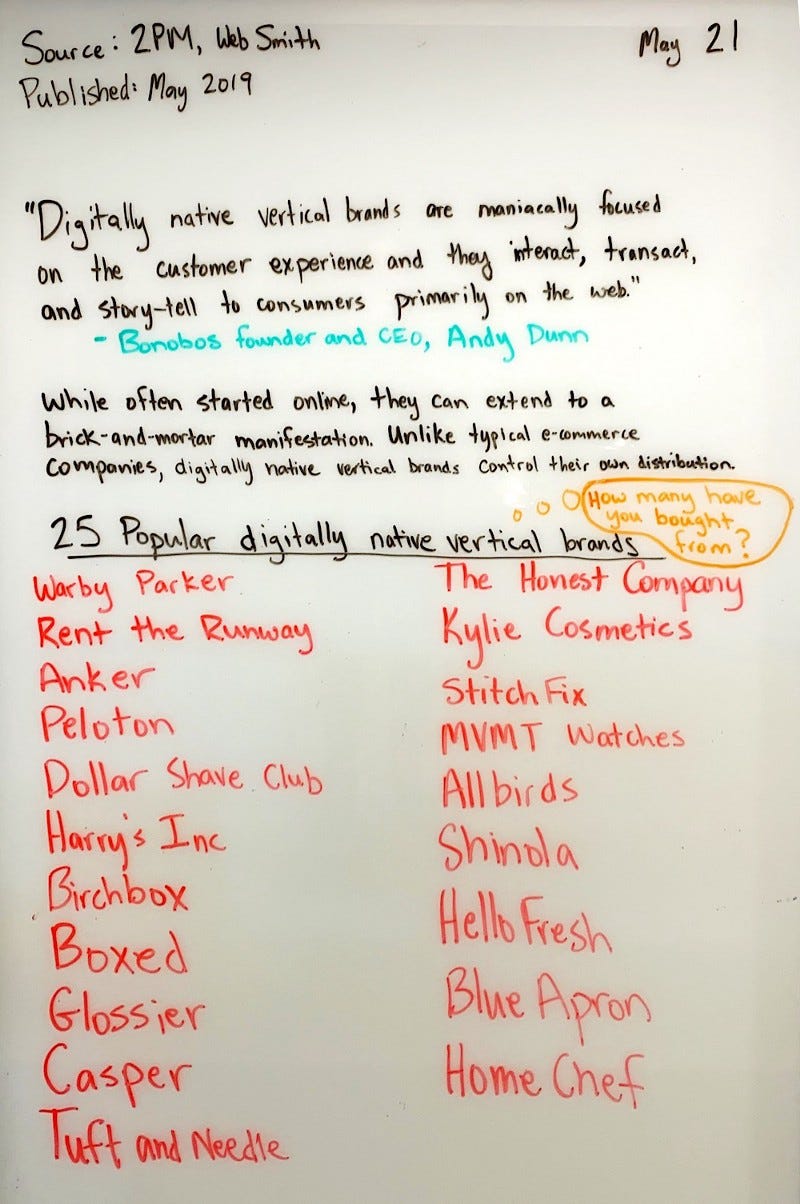 Source: 2PM, Web Smith
May 21
Published: May 2019
"Digitally native vertical brands are maniacally focused
on the customer experience and they interact, transact,
and story-tell to consumers primarily on the web."
- Bonobos founder and CEO, Andy Dunn
While often started online, they can extend to a
brick-and-mortar manifestation. Unlike typical e-commerce
companies, digitally native vertical brands control their own distribution.
How many have
you bought
from?
25 Popular digitally native vertical brands
Warby Parker
Rent the Runway
Anker
Peloton
Dollar Shave Club
Harry's Inc
Birchbox
Boxed
Glossier
Casper
Tuft and Needle
The Honest Company
Kylie Cosmetics
Stitch Fix
MVMT Watches
Allbirds
Shinola
Hello Fresh
Blue Apron
Home Chef